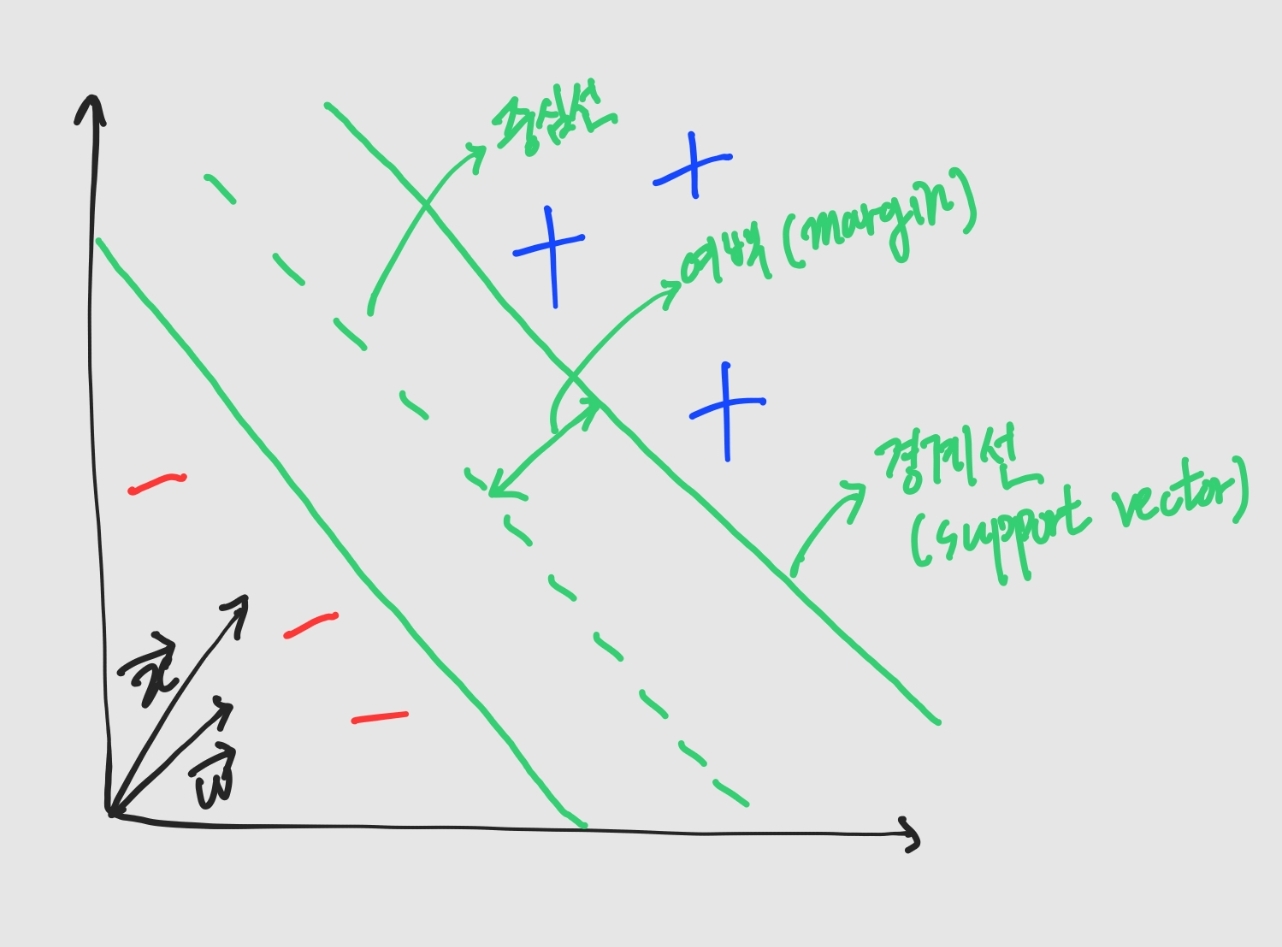 중심선
여백 (margin)
경계선
(support vector)
x
w